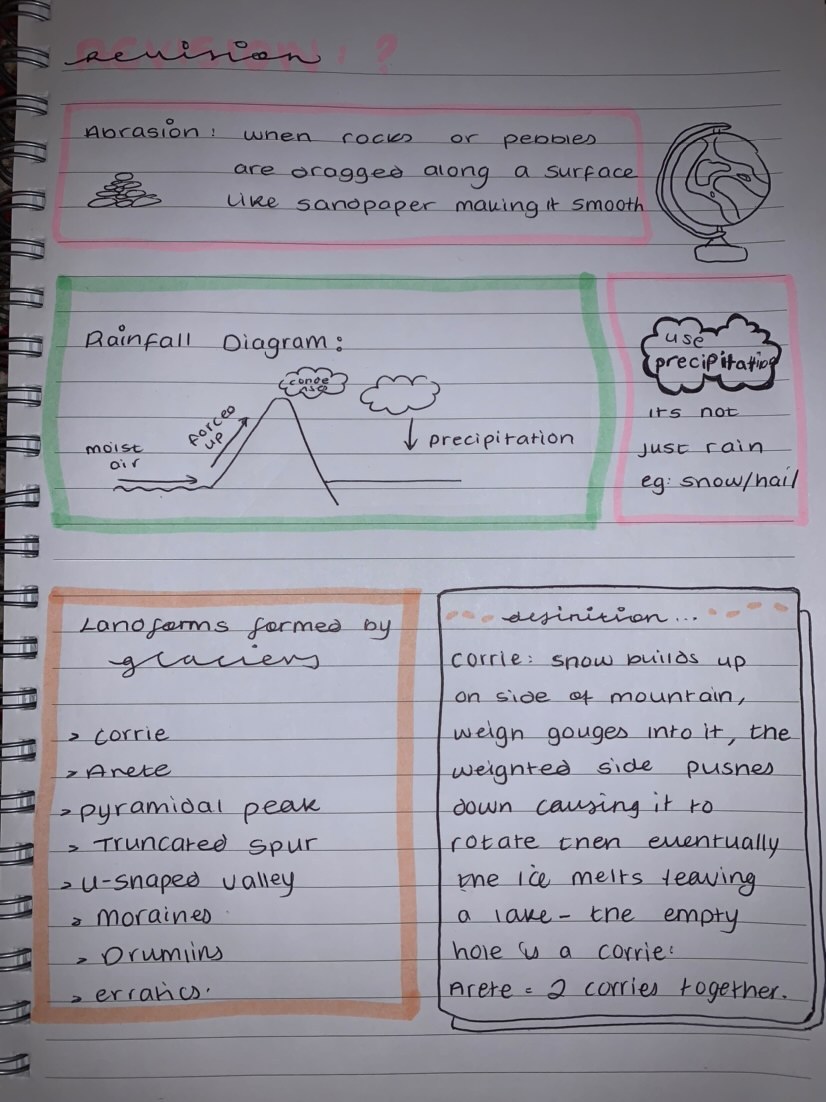 REVISION: ?
revision
Abrasion: when rocks or pebbles
are dragged along a surface
like sandpaper making it smooth
Rainfall Diagram:
moist
air
forced
up
conde
nse
precipitation
use
precipitation
its not
just rain
eg: snow/hail
Landforms formed by
glaciers
> corrie
> Arete
> pyramidal peak
> Truncated spur
> u-shaped valley
> moraines
> Drumlins
> erratics.
definition...
corrie: snow builds up
on side of mountain,
weigh gouges into it, the
weighted side pushes
down causing it to
rotate then eventually
the ice melts leaving
a lake - the empty
hole is a corrie:
Arete = 2 corries together.